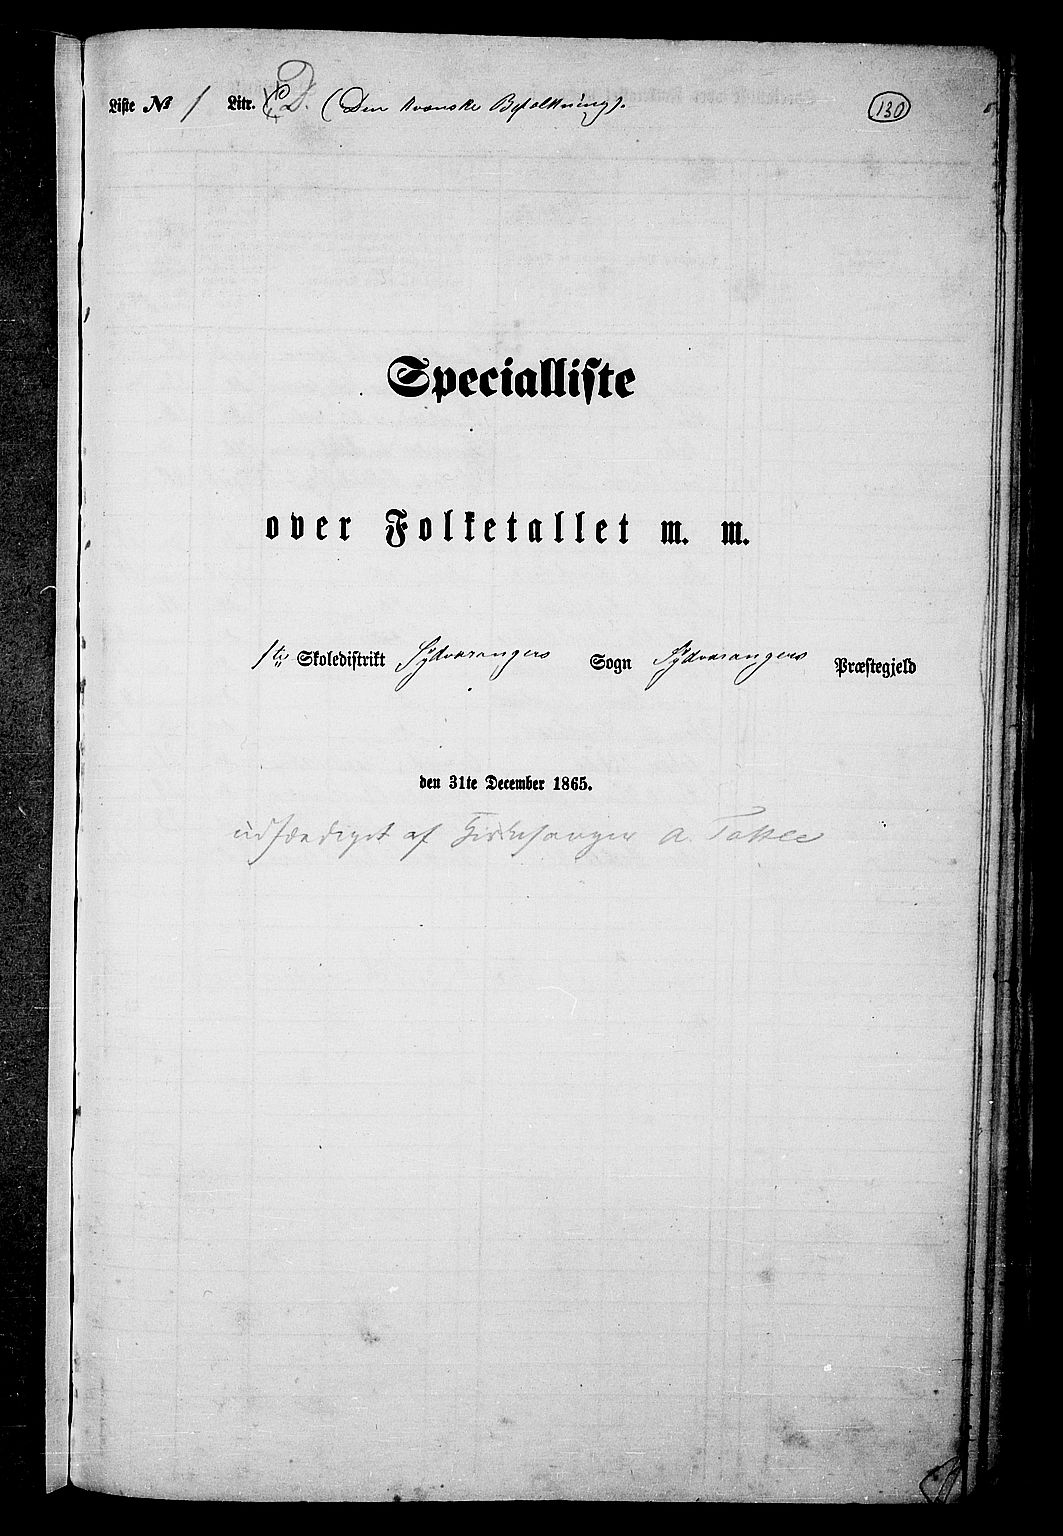 Liste No 1 Litr. D. (Den kvænske Befolkning). 130
Specialliste
over Folketallet m. m.
1te Skoledistrikt Sydvarangers Sogn Sydvarangers Præstegjeld
den 31te December 1865.
udfærdiget af Kirkesanger A.